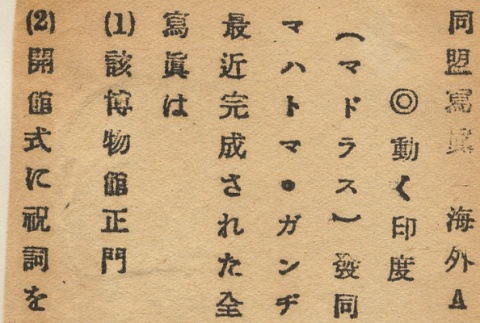 同盟寫眞 海外A
◎動く印度
(マドラス)發同
マハトマ・ガンヂ
最近完成された全
寫眞は
(1)該博物館正門
(2)開館式に祝詞を